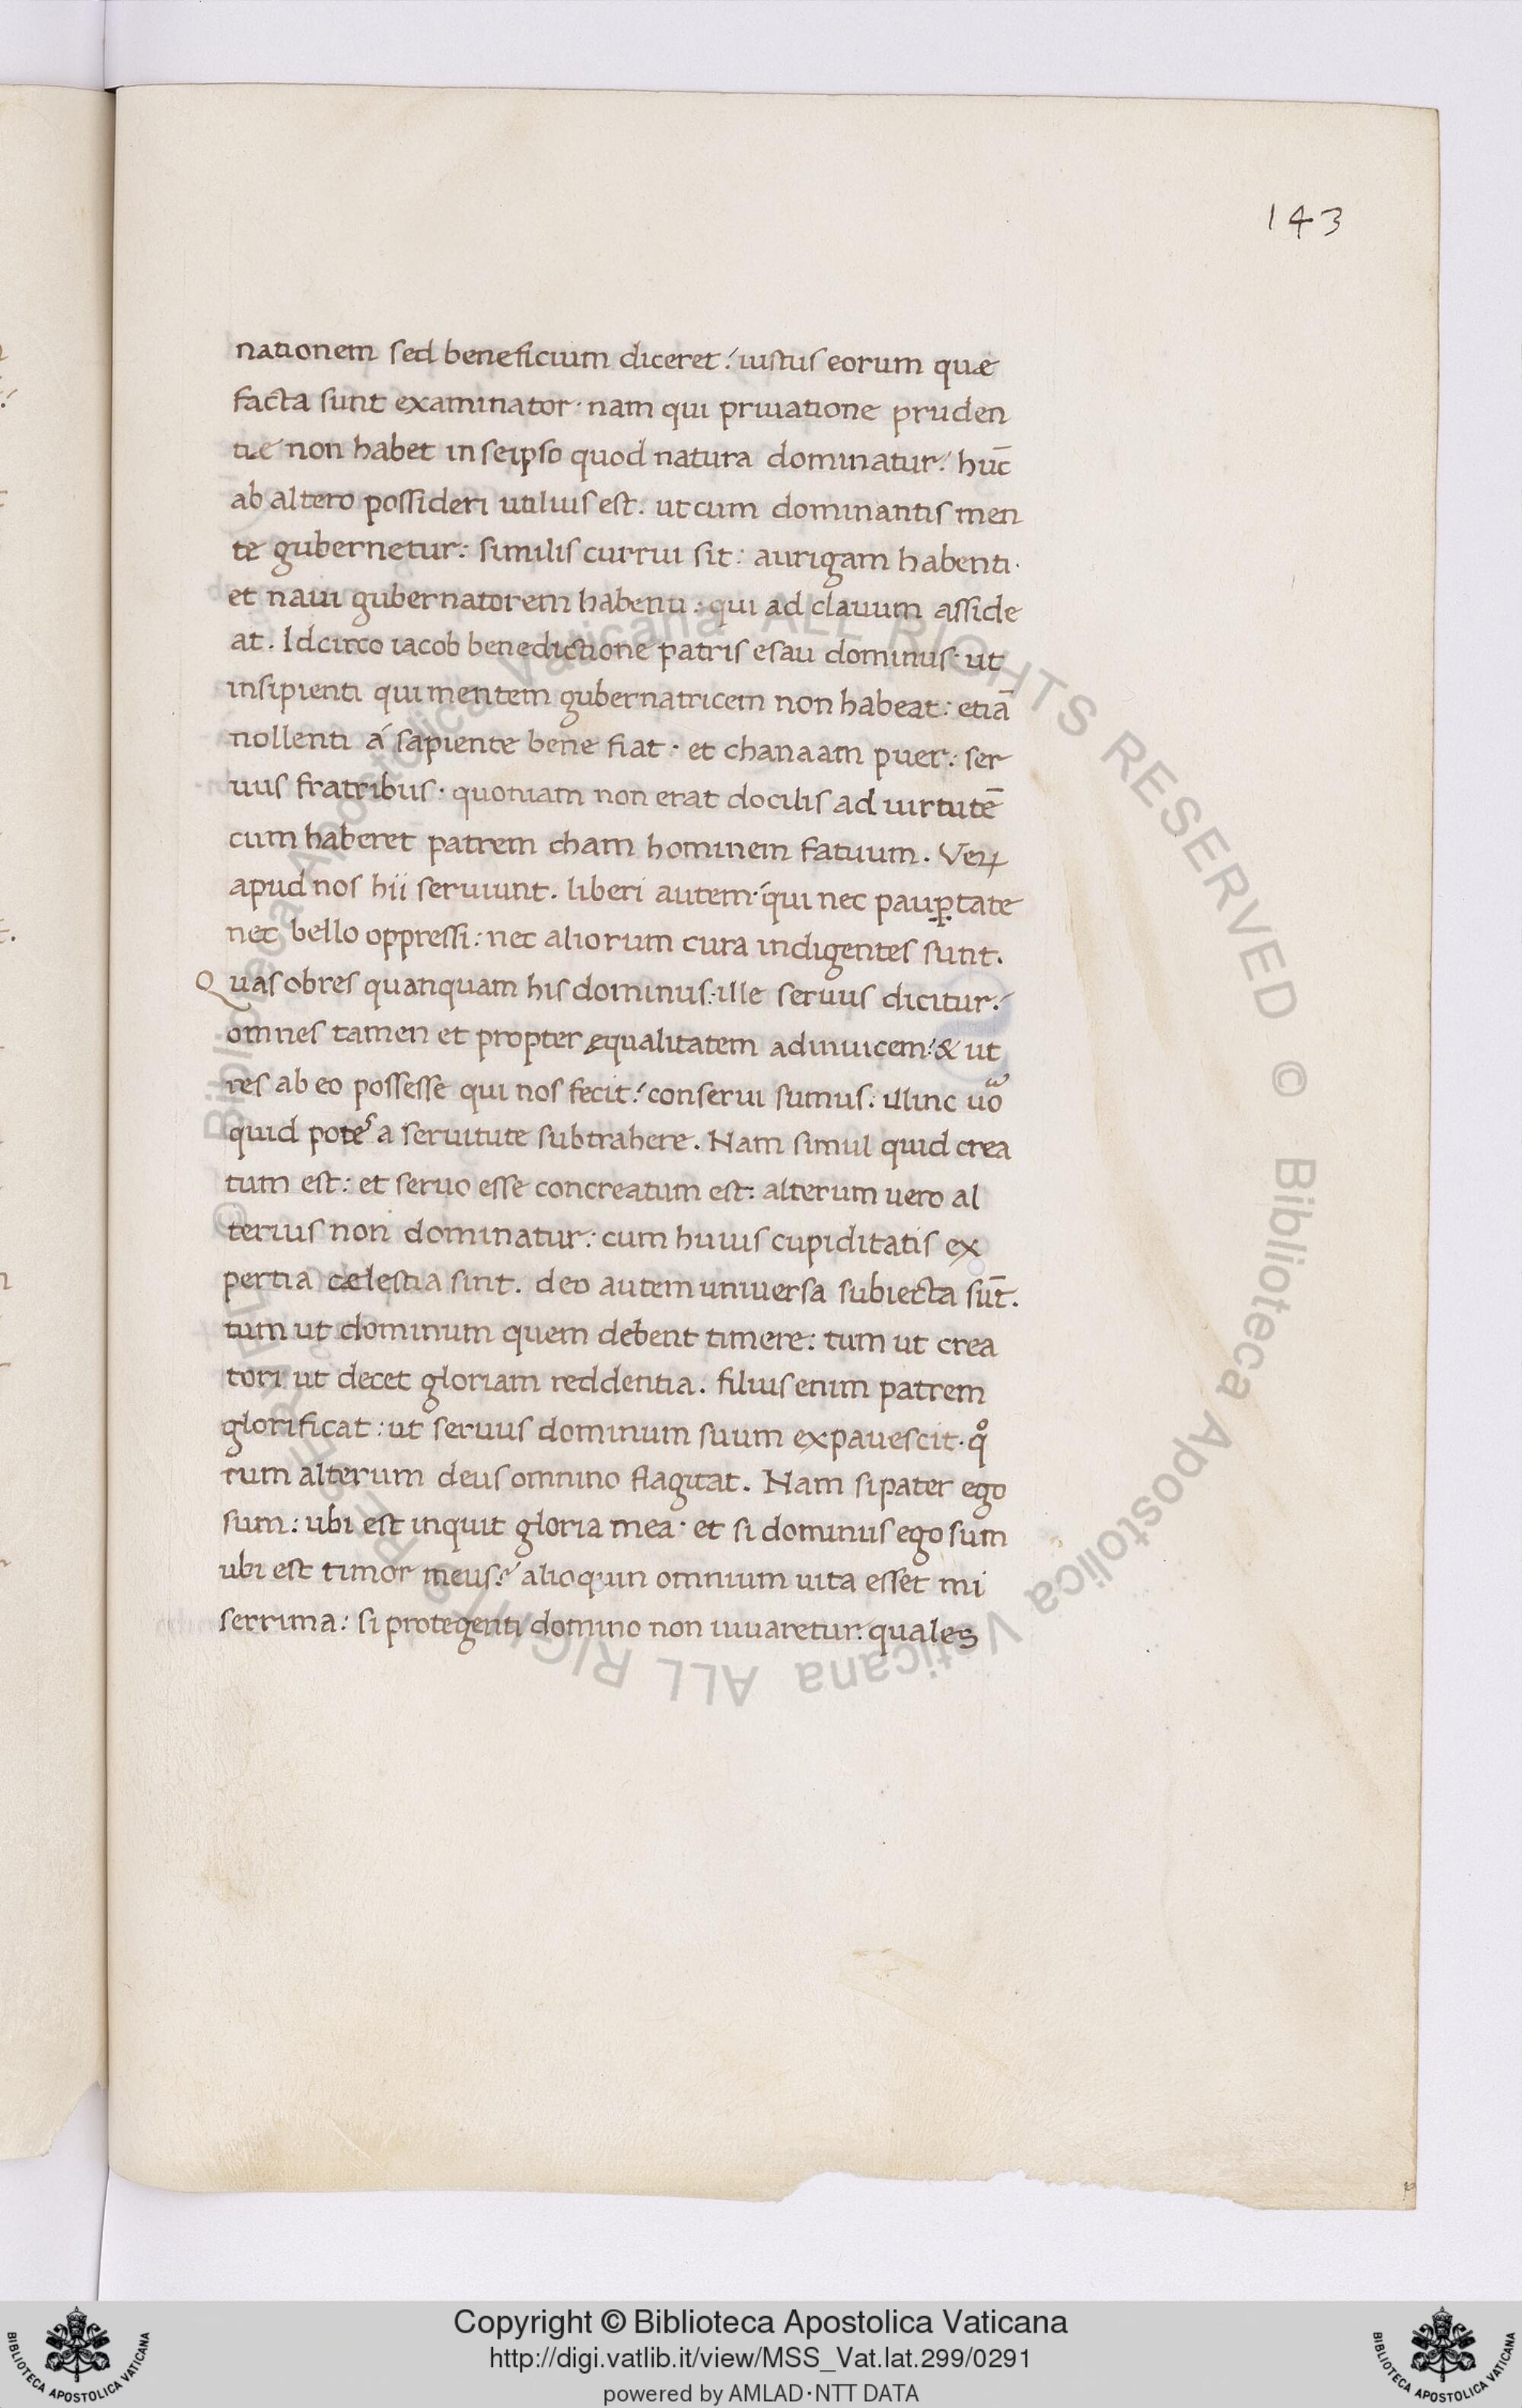 143
nationem sed beneficium diceret: iustus eorum quæ
facta sunt examinator· nam qui priuatione pruden
tiæ non habet in seipso quod natura dominatur: huc̄
ab altero possideri utilius est. ut cum dominantis men
te gubernetur: similis currui sit: aurigam habenti·
et naui gubernatorem habenti: qui ad clauum asside
at. Idcirco iacob benedictione patris esau dominus· ut
insipienti qui mentem gubernatricem non habeat: etiā
nollenti á sapiente bene fiat· et chanaam puer: ser
uus fratribus· quoniam non erat docilis ad uirtutē
cum haberet patrem cham hominem fatuum. Veꝝ
apud nos hii seruiunt. liberi autem· qui nec pauꝑtate
nec bello oppressi: nec aliorum cura indigentes sunt.
Quas ob res quanquam his dominus: ille seruus dicitur:
omnes tamen et propter ęqualitatem adinuicem: & ut
res ab eo possesse qui nos fecit: conserui sumus. illinc uo
quid potes a seruitute subtrahere. Nam simul quid crea
tum est: et seruo esse concreatum est: alterum uero al
terius non dominatur: cum huius cupiditatis ex
pertia cælestia sint. deo autem uniuersa subiecta sūt.
tum ut dominum quem debent timere: tum ut crea
tori ut decet gloriam reddentia. filius enim patrem
glorificat: ut seruus dominum suum expauescit· qͦ
rum alterum deus omnino flagitat. Nam si pater ego
sum: ubi est inquit gloria mea· et si dominus ego sum
ubi est timor meus? alioquin omnium uita esset mi
serrima: si protegenti domino non iuuaretur: quales
© Biblioteca Apostolica Vaticana ALL RIGHTS RESERVED © Biblioteca Apostolica Vaticana ALL RIGHTS RESERVED
Copyright © Biblioteca Apostolica Vaticana
http://digi.vatlib.it/view/MSS_Vat.lat.299/0291
powered by AMLAD·NTT DATA
BIBLIOTECA APOSTOLICA VATICANA
BIBLIOTECA APOSTOLICA VATICANA